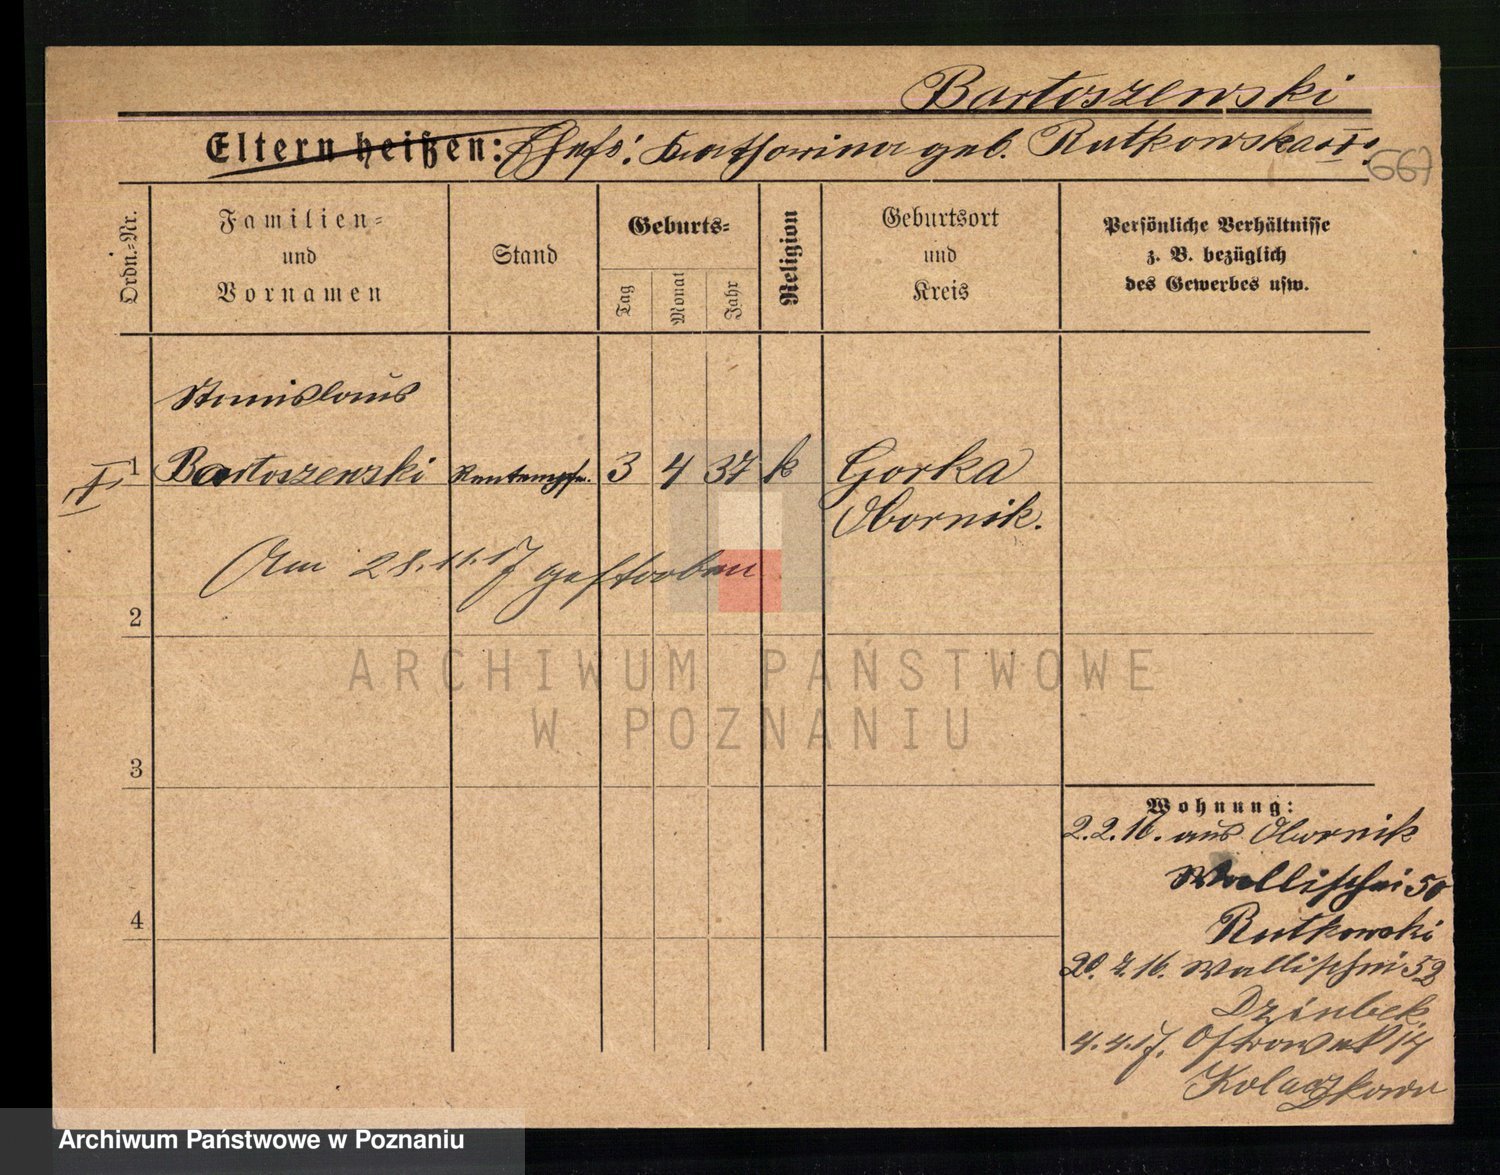 Bartoszewski
Eltern heißen: Ehefr: Katharina geb. Rutkowska
667
Ordn.-Nr.
Familien-
und
Vornamen
Stand
Geburts-
Tag
Monat
Jahr
Religion
Geburtsort
und
Kreis
Persönliche Verhältnisse
z. B. bezüglich
des Gewerbes usw.
Stanislaus
1 Bartoszewski Rentempf. 3 4 37 k Gorka
Obornik.
Am 28.11.17 gestorben
2
3
4
Wohnung:
2.2.16. aus Obornik
Wallischei 50
Rutkowski
20. 7. 16. Wallischei 52
Dzinbek
4.4.17.
ARCHIWUM PAŃSTWOWE
W POZNANIU
Archiwum Państwowe w Poznaniu